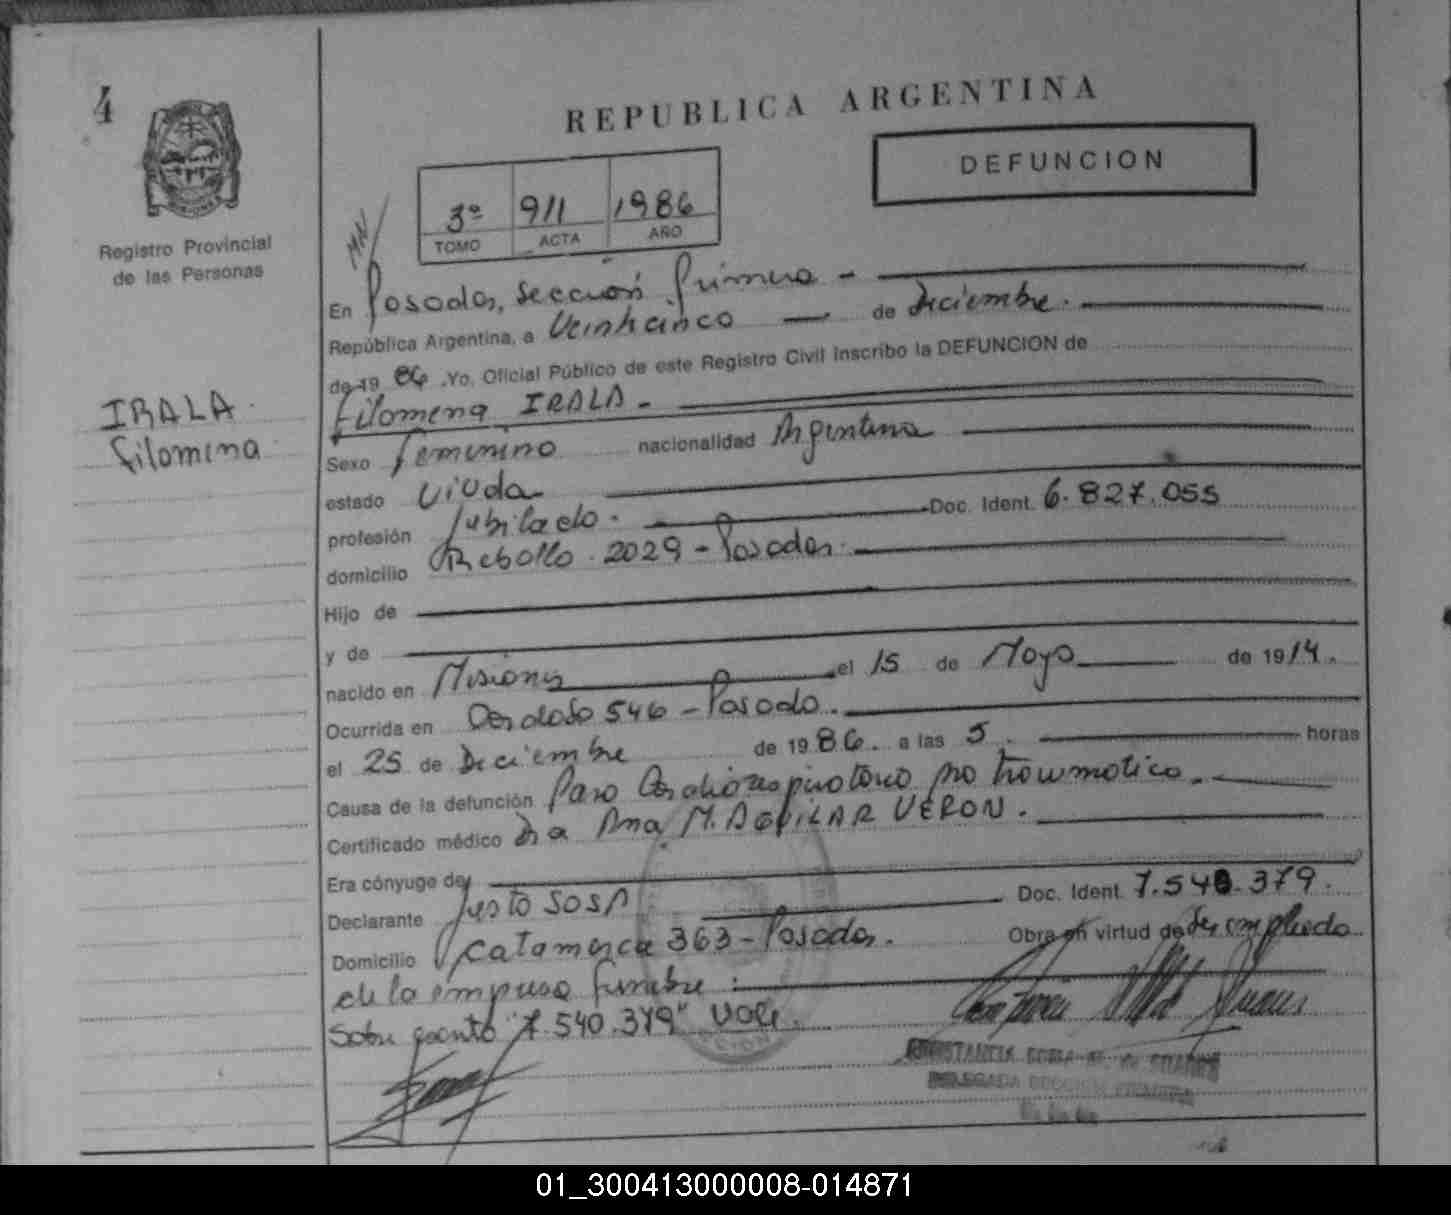 4
REPUBLICA ARGENTINA
DEFUNCION
3º 911 1986
TOMO ACTA AÑO
Registro Provincial
de las Personas
En Posadas, Sección Primera -
República Argentina, a Veinticinco — de Diciembre.
de 19 86 .Yo, Oficial Público de este Registro Civil Inscribo la DEFUNCION de
IRALA.
Filomena
Filomena IRALA -
Sexo Femenino nacionalidad Argentina
estado Viuda
profesión Jubilado. Doc. Ident. 6.827.055
domicilio Rebollo 2029 - Posadas.
Hijo de
y de
nacido en Misiones el 15 de Mayo de 1914.
Ocurrida en 546 - Posadas.
el 25 de Diciembre de 1986. a las 5. horas
Causa de la defunción Paro Cardiorespiratorio no traumatico.
Certificado médico Dra Ana M. AGUILAR VERON.
Era cónyuge de
Declarante Justo SOSA Doc. Ident. 7.540.379.
Domicilio Catamarca 363 - Posadas. Obra en virtud de Ser empleado
de la empresa funebre:
Sobre "7.540.379" Vale.
DELEGADA SECCION PRIMERA
01_300413000008-014871